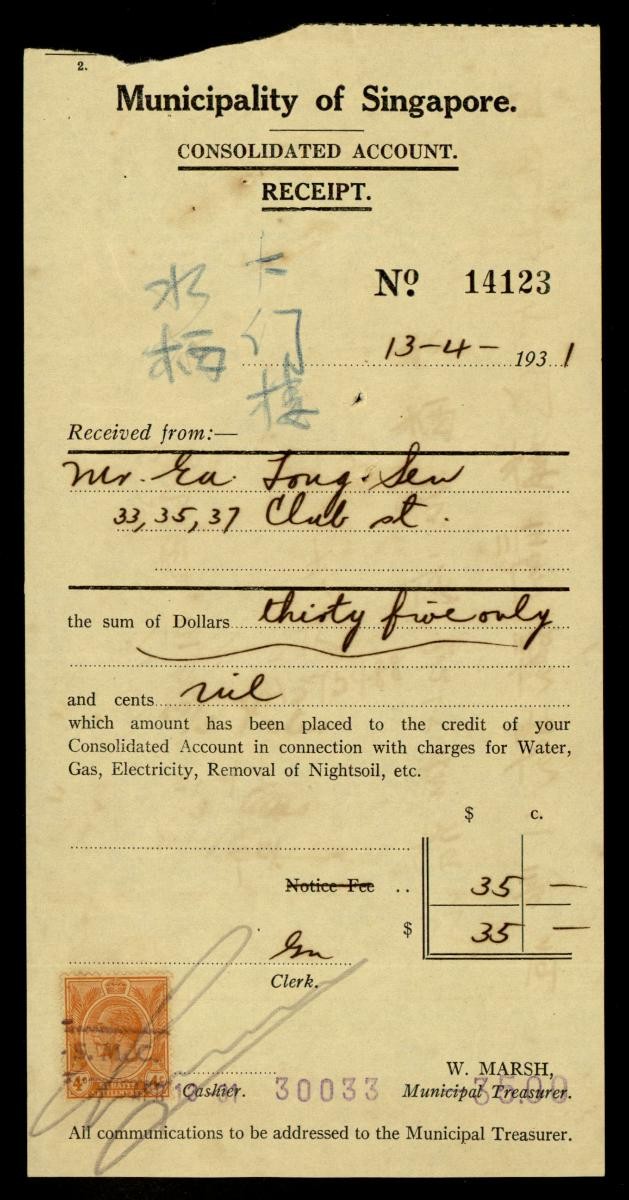 2.
Municipality of Singapore.
CONSOLIDATED ACCOUNT.
RECEIPT.
水
Nº 14123
13-4- 1931
Received from:—
Mr. Ea. Tong. Sen
33, 35, 37 Club st.
the sum of Dollars thirty five only
and cents nil
which amount has been placed to the credit of your
Consolidated Account in connection with charges for Water,
Gas, Electricity, Removal of Nightsoil, etc.
$ c.
Notice Fee .. 35 —
$ 35 —
Clerk.
S. M. C.
W. MARSH,
Cashier. 30033 Municipal Treasurer. 35.00
All communications to be addressed to the Municipal Treasurer.